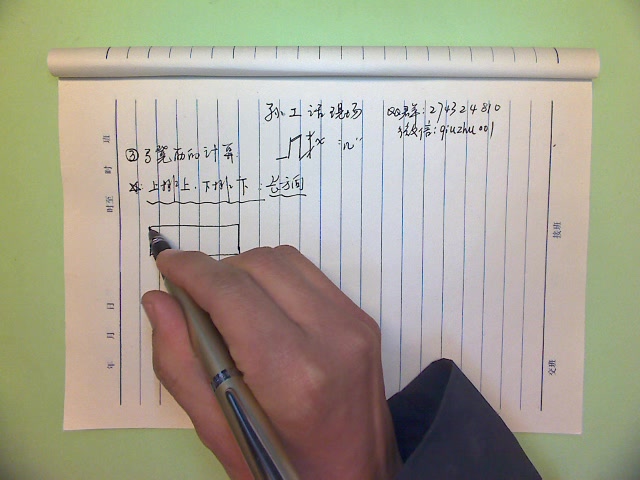 孙工话现场
QQ群:274324810
微信:qiuzhu001
② 弓凳筋的计算 "n"
上排上、下排下:长方向
班
时
时至
日
月
年
接班
交班